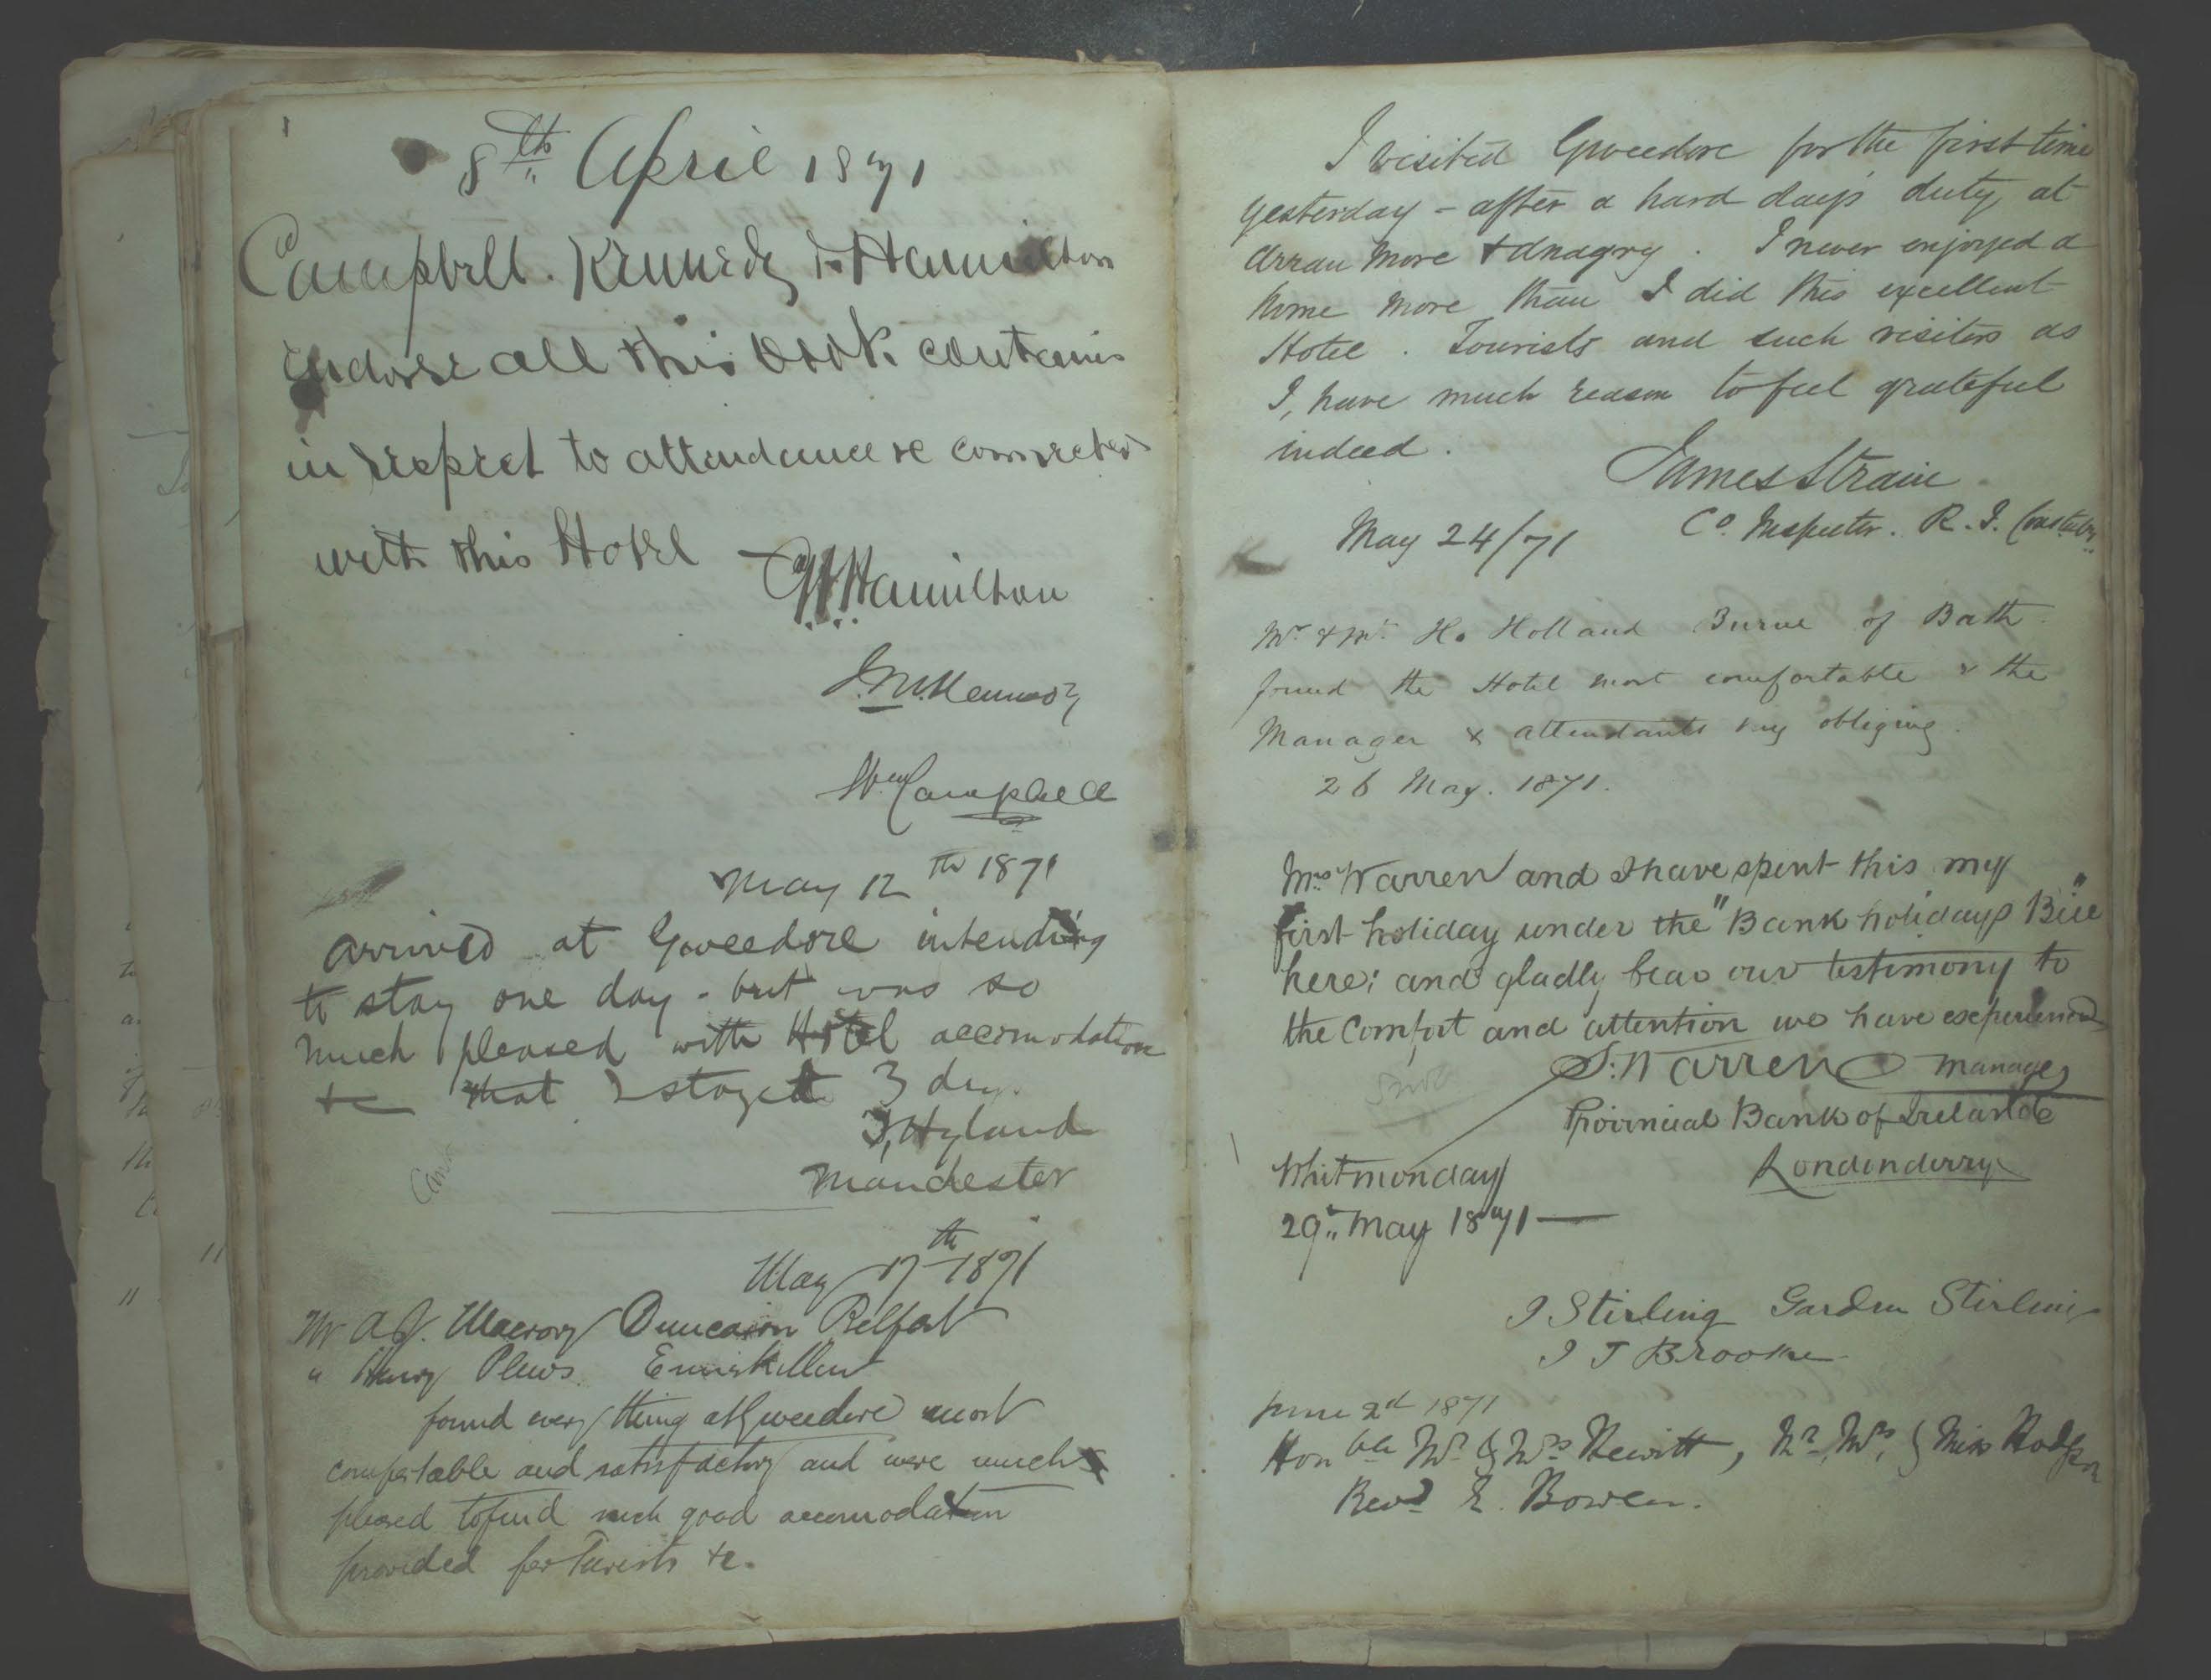 8th April 1871
Campbell. Kennedy & Hamilton
endorse all this book contains
in respect to attendance &c connected
with this Hotel
Hamilton
Kennedy
Wm Campbell
May 12th 1871
arrived at Gweedore intending
to stay one day - but was so
much pleased with Hotel accomodation
&c that I stayed 3 day.
J, Hyland
Manchester
May 17th 1871
Mr A J. Macrory Duncairn Belfast
" Henry Plews Enniskillen
found every thing at Gweedore most
comfortable and satisfactory and were much
pleased to find such good accomodation
provided for Turists &c.
I visited Gweedore for the first time
yesterday - after a hard day's duty, at
Arran More & . I never enjoyed a
home more than I did this excellent
Hotel . Tourists and such visitors as
I, have much reason to feel grateful
indeed .
James Strain
Co. Inspector. R. I. Constaby.
May 24/71
Mr & Mrs H. Holland Burne of Bath
found the Hotel most comfortable & the
Manager & attendants very obliging.
26 May. 1871.
Mrs Warren and I have spent this my
first holiday under the "Bank holidays Bill"
here; and gladly bear our testimony to
the Comfort and attention we have experienced
S. Warren manager
Provincial Bank of Ireland
Londonderry
Whitmonday
29th May 1871 —
J Stirling Garden Stirling
J T Brooke
June 2nd 1871
Honble Mr. & Mrs Hewitt, Mr., Mrs, & Miss Hodgson
Revd E. Bowen.